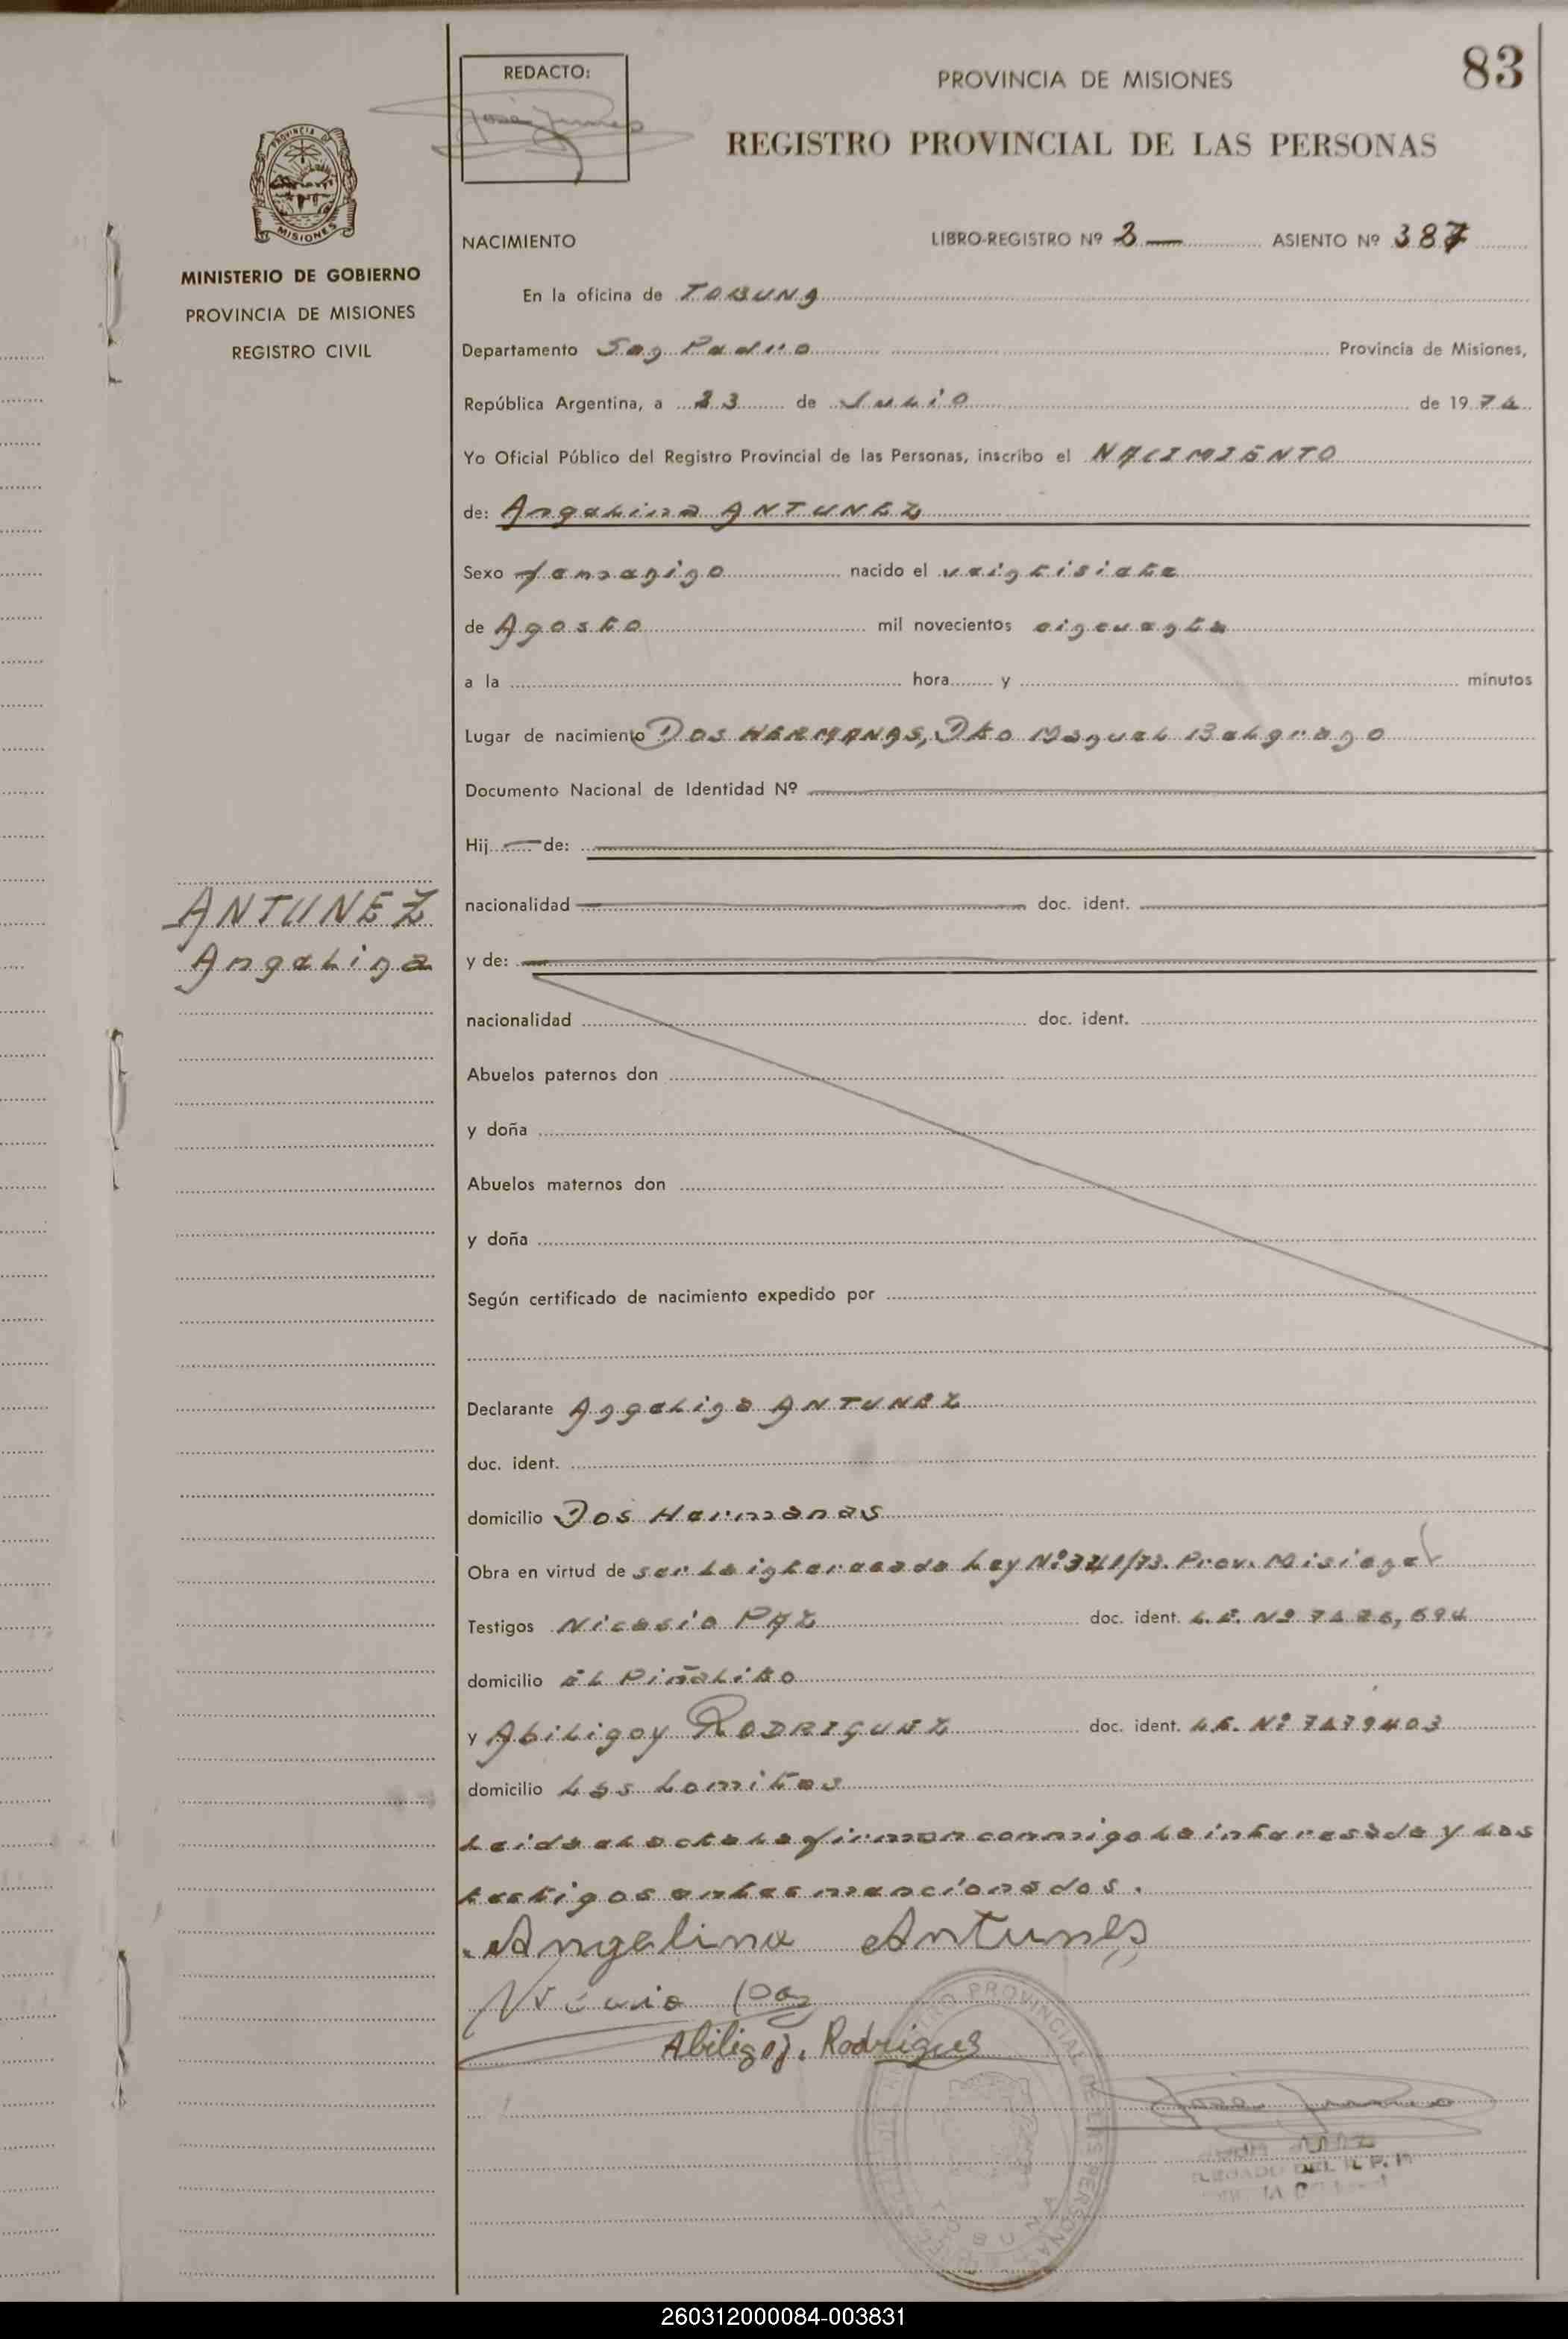 83
REDACTO:
PROVINCIA DE MISIONES
REGISTRO PROVINCIAL DE LAS PERSONAS
PROVINCIA DE
MISIONES
MINISTERIO DE GOBIERNO
PROVINCIA DE MISIONES
REGISTRO CIVIL
NACIMIENTO LIBRO-REGISTRO Nº 3 — ASIENTO Nº 387
En la oficina de TOBUNA
Departamento San Pedro Provincia de Misiones,
República Argentina, a 23 de Julio de 1974
Yo Oficial Público del Registro Provincial de las Personas, inscribo el NACIMIENTO
de: Angelina ANTUNEZ
Sexo femenino nacido el veintisiete
de Agosto mil novecientos cincuenta
a la hora y minutos
Lugar de nacimiento DOS HERMANAS, Dto Manuel Belgrano
Documento Nacional de Identidad Nº
Hij — de:
nacionalidad doc. ident.
y de:
ANTUNEZ
Angelina
nacionalidad doc. ident.
Abuelos paternos don
y doña
Abuelos maternos don
y doña
Según certificado de nacimiento expedido por
Declarante Angelina ANTUNEZ
doc. ident.
domicilio Dos Hermanas
Obra en virtud de ser la interesada Ley Nº 341/73. Prov. Misiones
Testigos Nicasio PAZ doc. ident. L.E. Nº
domicilio EL Piñalito
y Abiligoy RODRIGUEZ doc. ident. L.E. Nº 7479403
domicilio Las Lomitas
Leida el acta la firman conmigo la interesada y los
testigos antes mencionados.
Angelina Antunes
Paz
Abiligoj. Rodrigues
PROVINCIAL DE LAS PERSONAS
DEL R. P. P.
260312000084-003831